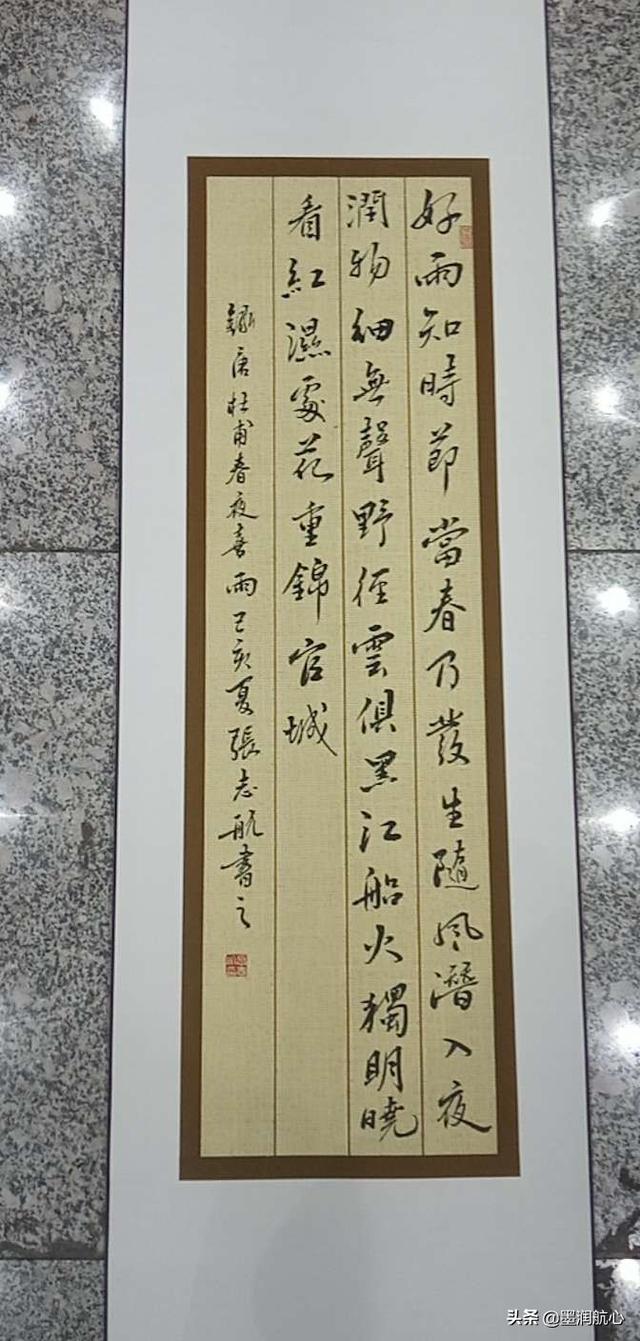 好雨知時節當春乃發生隨風潛入夜
潤物細無聲野徑雲俱黑江船火獨明曉
看紅濕處花重錦官城
錄唐杜甫春夜喜雨己亥夏張志航書之
头条 @墨润航心